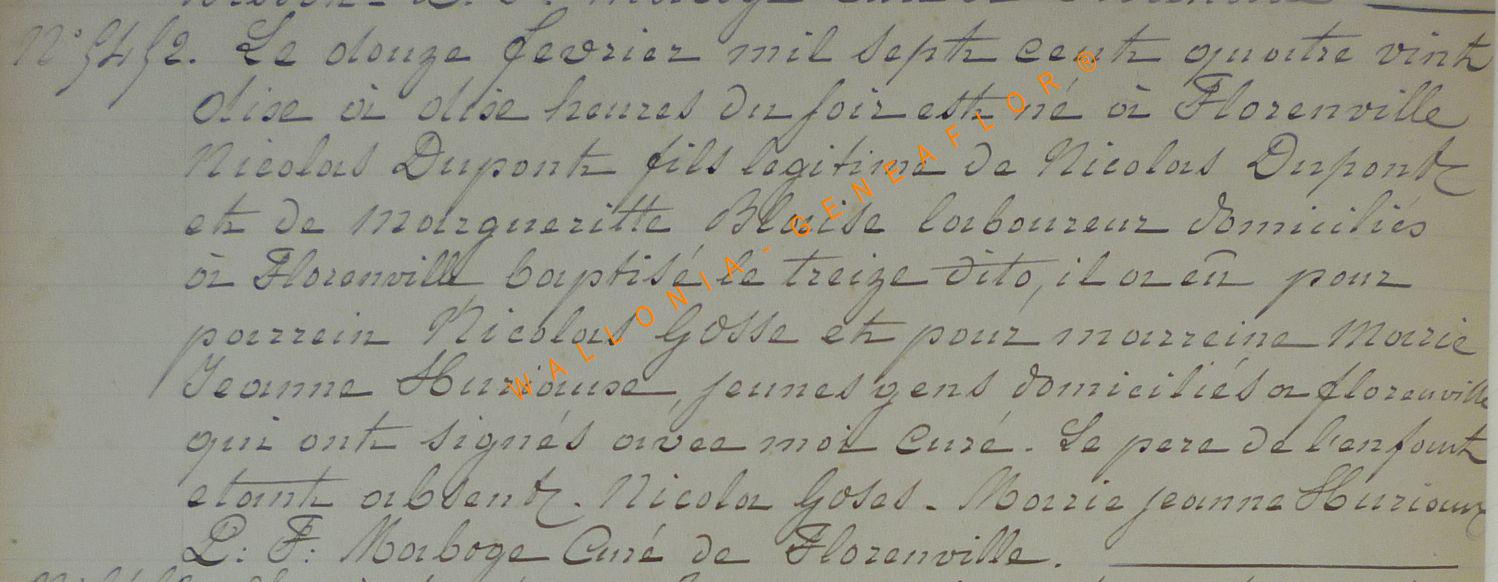 N° 5452. Le douze fevrier mil sept cent quatre vint
dise à dise heures du soir est né à Florenville
Nicolas Dupont fils legitime de Nicolas Dupont
et de Margueritte Blaise laboureur domiciliés
à Florenville, baptisé le treize dito, il a eu pour
parrein Nicolas Gosse et pour marreine Marie
Jeanne Huriause, jeunes gens domiciliés a florenville
qui ont signés avec moi curé. Le pere de l'enfant
etant absent. Nicola Goses. Marie jeanne Huriaux
P: F: Maboge Curé de Florenville.
WALLONIA - GENEAFLOR ®